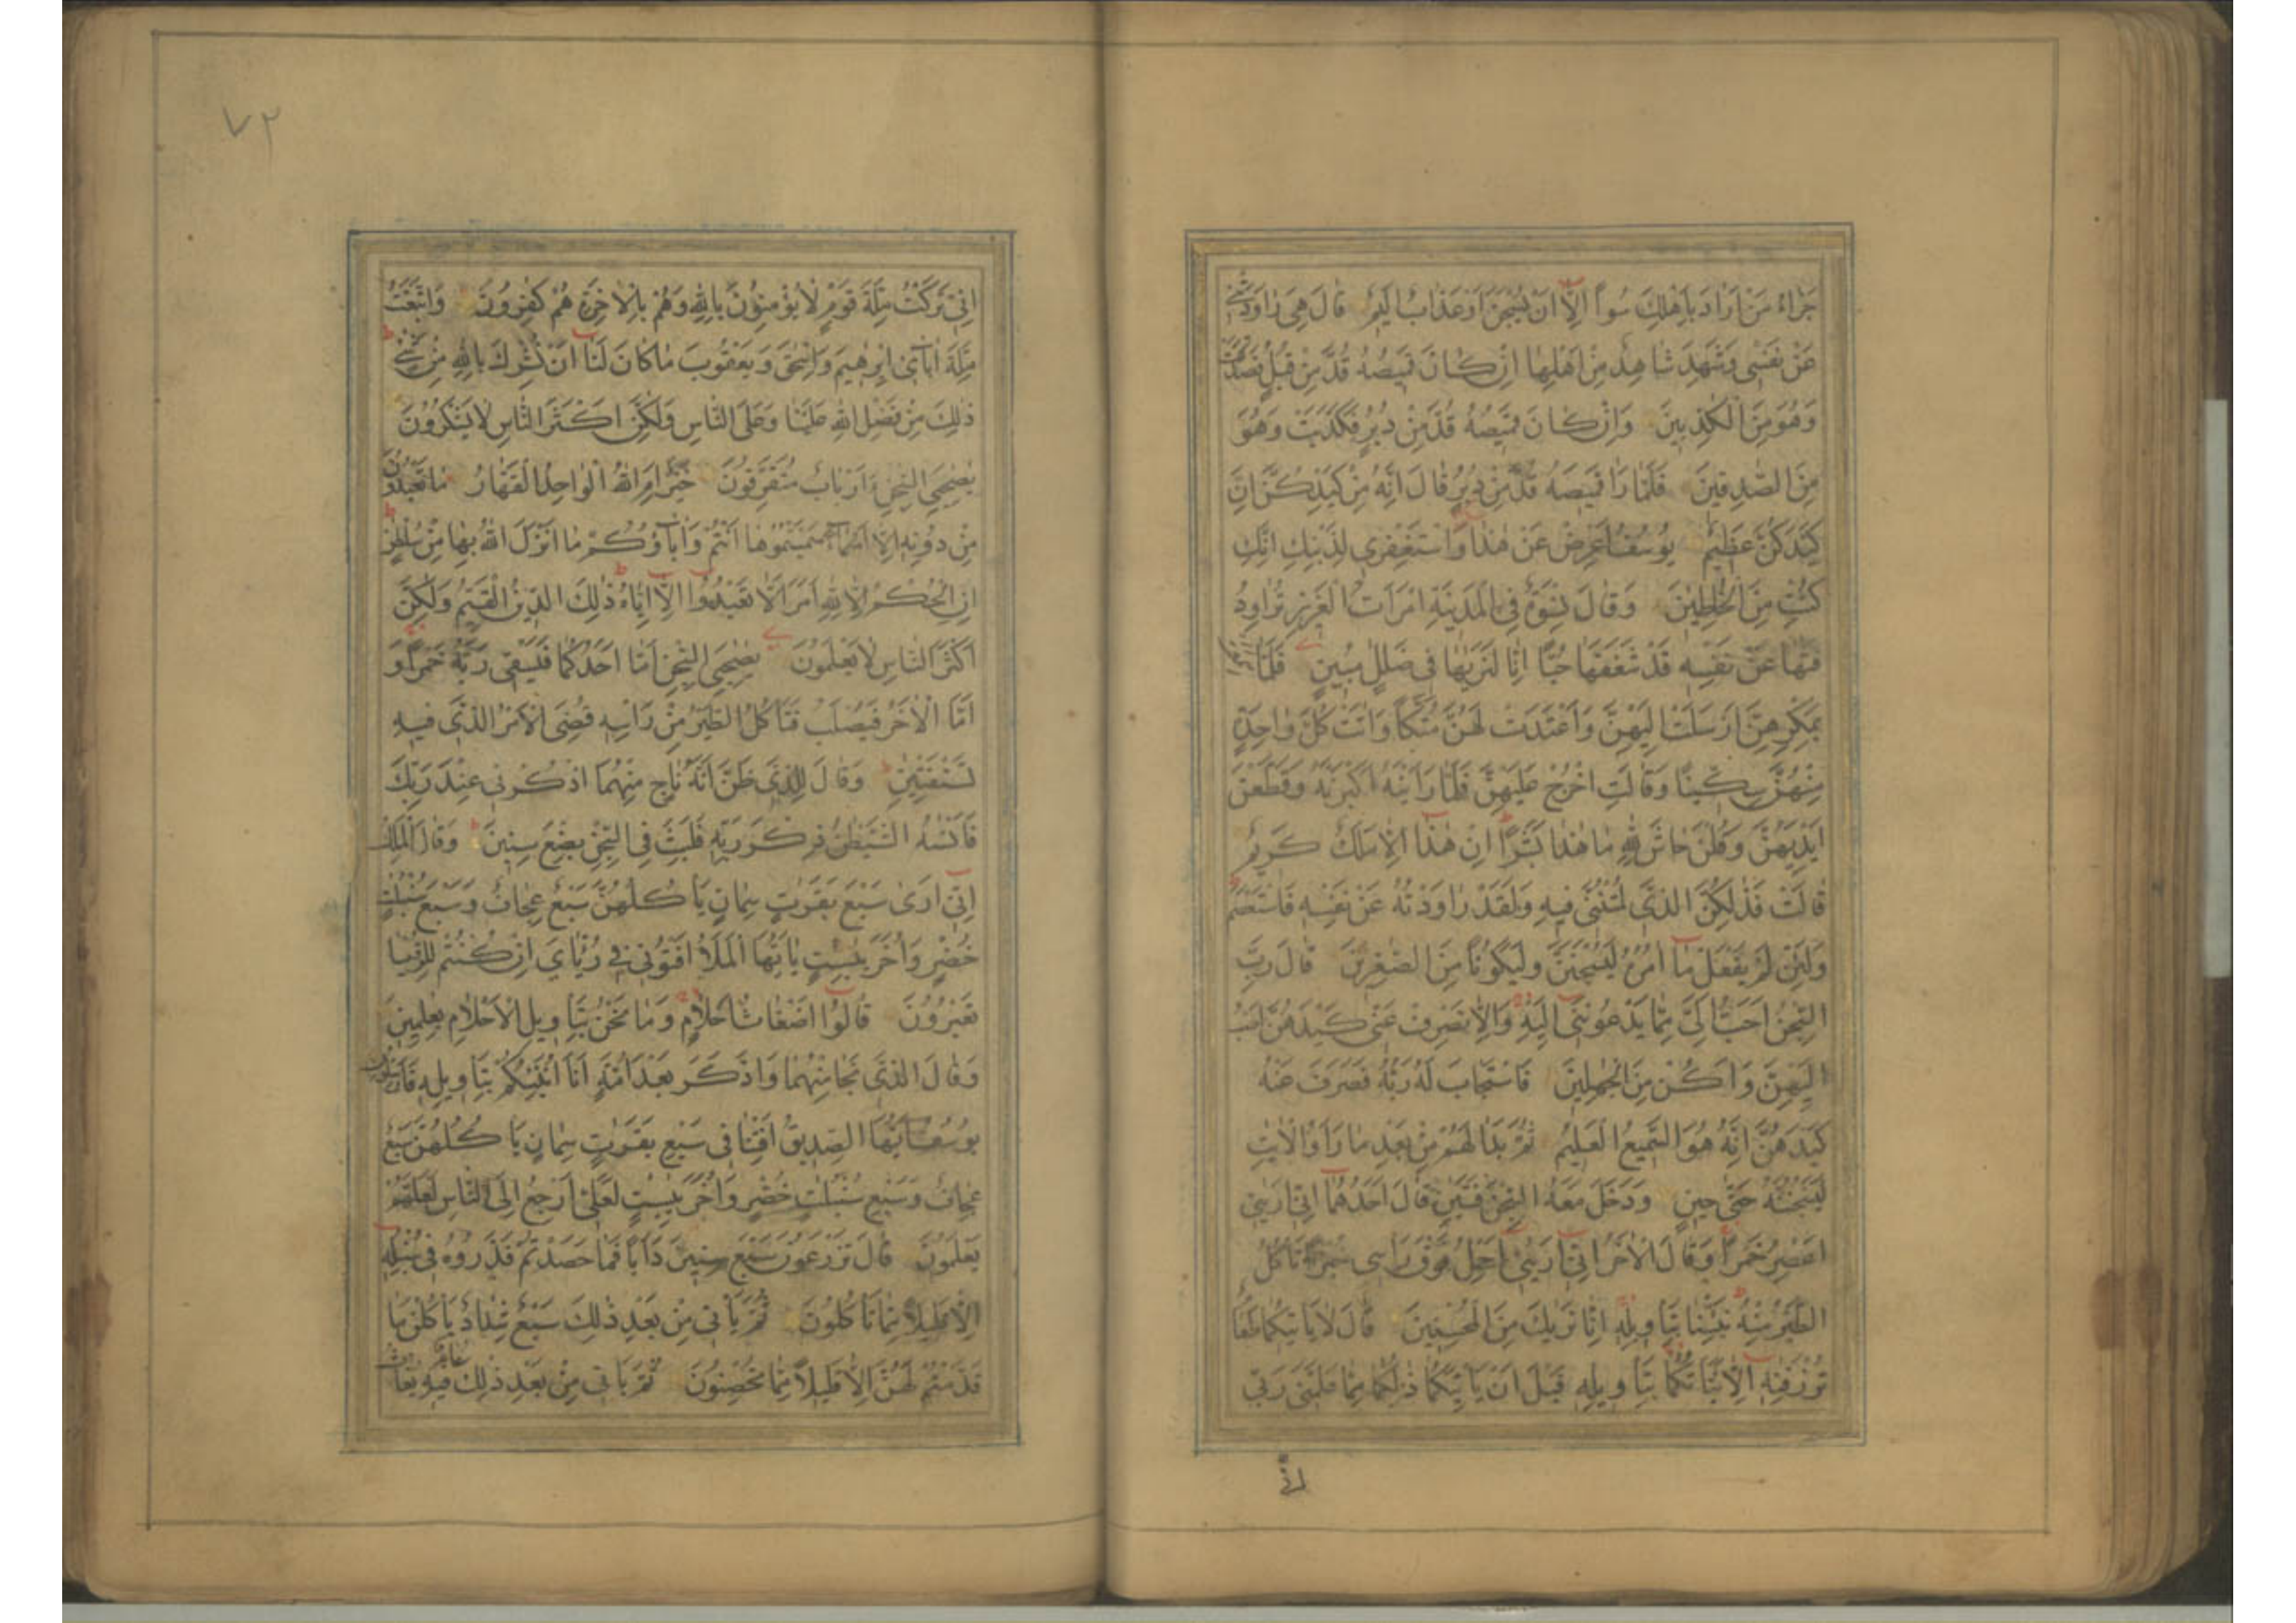 جَزَاءُ مَنْ اَرَادَ بِاَهْلِكَ سُوءًا اِلَّا اَنْ يُسْجَنَ اَوْ عَذَابٌ اَلِيمٌ قَالَ هِيَ رَاوَدَتْنِي
عَنْ نَفْسِي وَشَهِدَ شَاهِدٌ مِنْ اَهْلِهَا اِنْ كَانَ قَمِيصُهُ قُدَّ مِنْ قُبُلٍ فَصَدَقَتْ
وَهُوَ مِنَ الْكٰذِبِينَ وَاِنْ كَانَ قَمِيصُهُ قُدَّ مِنْ دُبُرٍ فَكَذَبَتْ وَهُوَ
مِنَ الصّٰدِقِينَ فَلَمَّا رَاٰ قَمِيصَهُ قُدَّ مِنْ دُبُرٍ قَالَ اِنَّهُ مِنْ كَيْدِكُنَّ اِنَّ
كَيْدَكُنَّ عَظِيمٌ يُوسُفُ اَعْرِضْ عَنْ هٰذَا وَاسْتَغْفِرِي لِذَنْبِكِ اِنَّكِ
كُنْتِ مِنَ الْخٰطِئِينَ وَقَالَ نِسْوَةٌ فِي الْمَدِينَةِ امْرَاَتُ الْعَزِيزِ تُرَاوِدُ
فَتٰهَا عَنْ نَفْسِهِ قَدْ شَغَفَهَا حُبًّا اِنَّا لَنَرٰيهَا فِي ضَلٰلٍ مُبِينٍ فَلَمَّا سَمِعَتْ
بِمَكْرِهِنَّ اَرْسَلَتْ اِلَيْهِنَّ وَاَعْتَدَتْ لَهُنَّ مُتَّكَاً وَاٰتَتْ كُلَّ وَاحِدَةٍ
مِنْهُنَّ سِكِّينًا وَقَالَتِ اخْرُجْ عَلَيْهِنَّ فَلَمَّا رَاَيْنَهُ اَكْبَرْنَهُ وَقَطَّعْنَ
اَيْدِيَهُنَّ وَقُلْنَ حَاشَ لِلّٰهِ مَا هٰذَا بَشَرًا اِنْ هٰذَا اِلَّا مَلَكٌ كَرِيمٌ
قَالَتْ فَذٰلِكُنَّ الَّذِي لُمْتُنَّنِي فِيهِ وَلَقَدْ رَاوَدْتُهُ عَنْ نَفْسِهِ فَاسْتَعْصَمَ
وَلَئِنْ لَمْ يَفْعَلْ مَا اٰمُرُهُ لَيُسْجَنَنَّ وَلَيَكُونًا مِنَ الصّٰغِرِينَ قَالَ رَبِّ
السِّجْنُ اَحَبُّ اِلَيَّ مِمَّا يَدْعُونَنِي اِلَيْهِ وَاِلَّا تَصْرِفْ عَنِّي كَيْدَهُنَّ اَصْبُ
اِلَيْهِنَّ وَاَكُنْ مِنَ الْجٰهِلِينَ فَاسْتَجَابَ لَهُ رَبُّهُ فَصَرَفَ عَنْهُ
كَيْدَهُنَّ اِنَّهُ هُوَ السَّمِيعُ الْعَلِيمُ ثُمَّ بَدَا لَهُمْ مِنْ بَعْدِ مَا رَاَوُا الْاٰيٰتِ
لَيَسْجُنُنَّهُ حَتّٰى حِينٍ وَدَخَلَ مَعَهُ السِّجْنَ فَتَيٰنِ قَالَ اَحَدُهُمَا اِنِّي اَرٰينِي
اَعْصِرُ خَمْرًا وَقَالَ الْاٰخَرُ اِنِّي اَرٰينِي اَحْمِلُ فَوْقَ رَاْسِي خُبْزًا تَاْكُلُ
الطَّيْرُ مِنْهُ نَبِّئْنَا بِتَاْوِيلِهِ اِنَّا نَرٰيكَ مِنَ الْمُحْسِنِينَ قَالَ لَا يَاْتِيكُمَا طَعَامٌ
تُرْزَقَانِهِ اِلَّا نَبَّاْتُكُمَا بِتَاْوِيلِهِ قَبْلَ اَنْ يَاْتِيَكُمَا ذٰلِكُمَا مِمَّا عَلَّمَنِي رَبِّي
اِنِّي
٧٢
اِنِّي تَرَكْتُ مِلَّةَ قَوْمٍ لَا يُؤْمِنُونَ بِاللّٰهِ وَهُمْ بِالْاٰخِرَةِ هُمْ كٰفِرُونَ وَاتَّبَعْتُ
مِلَّةَ اٰبَائِي اِبْرٰهِيمَ وَاِسْحٰقَ وَيَعْقُوبَ مَا كَانَ لَنَا اَنْ نُشْرِكَ بِاللّٰهِ مِنْ شَيْءٍ
ذٰلِكَ مِنْ فَضْلِ اللّٰهِ عَلَيْنَا وَعَلَى النَّاسِ وَلٰكِنَّ اَكْثَرَ النَّاسِ لَا يَشْكُرُونَ
يٰصٰحِبَيِ السِّجْنِ ءَاَرْبَابٌ مُتَفَرِّقُونَ خَيْرٌ اَمِ اللّٰهُ الْوَاحِدُ الْقَهَّارُ مَا تَعْبُدُونَ
مِنْ دُونِهِ اِلَّا اَسْمَاءً سَمَّيْتُمُوهَا اَنْتُمْ وَاٰبَاؤُكُمْ مَا اَنْزَلَ اللّٰهُ بِهَا مِنْ سُلْطٰنٍ
اِنِ الْحُكْمُ اِلَّا لِلّٰهِ اَمَرَ اَلَّا تَعْبُدُوا اِلَّا اِيَّاهُ ذٰلِكَ الدِّينُ الْقَيِّمُ وَلٰكِنَّ
اَكْثَرَ النَّاسِ لَا يَعْلَمُونَ يٰصٰحِبَيِ السِّجْنِ اَمَّا اَحَدُكُمَا فَيَسْقِي رَبَّهُ خَمْرًا وَ
اَمَّا الْاٰخَرُ فَيُصْلَبُ فَتَاْكُلُ الطَّيْرُ مِنْ رَاْسِهِ قُضِيَ الْاَمْرُ الَّذِي فِيهِ
تَسْتَفْتِيٰنِ وَقَالَ لِلَّذِي ظَنَّ اَنَّهُ نَاجٍ مِنْهُمَا اذْكُرْنِي عِنْدَ رَبِّكَ
فَاَنْسٰهُ الشَّيْطٰنُ ذِكْرَ رَبِّهِ فَلَبِثَ فِي السِّجْنِ بِضْعَ سِنِينَ وَقَالَ الْمَلِكُ
اِنِّي اَرٰى سَبْعَ بَقَرٰتٍ سِمَانٍ يَاْكُلُهُنَّ سَبْعٌ عِجَافٌ وَسَبْعَ سُنْبُلٰتٍ
خُضْرٍ وَاُخَرَ يٰبِسٰتٍ يَا اَيُّهَا الْمَلَاُ اَفْتُونِي فِي رُءْيَايَ اِنْ كُنْتُمْ لِلرُّءْيَا
تَعْبُرُونَ قَالُوا اَضْغَاثُ اَحْلَامٍ وَمَا نَحْنُ بِتَاْوِيلِ الْاَحْلَامِ بِعٰلِمِينَ
وَقَالَ الَّذِي نَجَا مِنْهُمَا وَادَّكَرَ بَعْدَ اُمَّةٍ اَنَا اُنَبِّئُكُمْ بِتَاْوِيلِهِ فَاَرْسِلُونِ
يُوسُفُ اَيُّهَا الصِّدِّيقُ اَفْتِنَا فِي سَبْعِ بَقَرٰتٍ سِمَانٍ يَاْكُلُهُنَّ سَبْعٌ
عِجَافٌ وَسَبْعِ سُنْبُلٰتٍ خُضْرٍ وَاُخَرَ يٰبِسٰتٍ لَعَلِّي اَرْجِعُ اِلَى النَّاسِ لَعَلَّهُمْ
يَعْلَمُونَ قَالَ تَزْرَعُونَ سَبْعَ سِنِينَ دَاَبًا فَمَا حَصَدْتُمْ فَذَرُوهُ فِي سُنْبُلِهِ
اِلَّا قَلِيلًا مِمَّا تَاْكُلُونَ ثُمَّ يَاْتِي مِنْ بَعْدِ ذٰلِكَ سَبْعٌ شِدَادٌ يَاْكُلْنَ مَا
قَدَّمْتُمْ لَهُنَّ اِلَّا قَلِيلًا مِمَّا تُحْصِنُونَ ثُمَّ يَاْتِي مِنْ بَعْدِ ذٰلِكَ عَامٌ فِيهِ يُغَاثُ